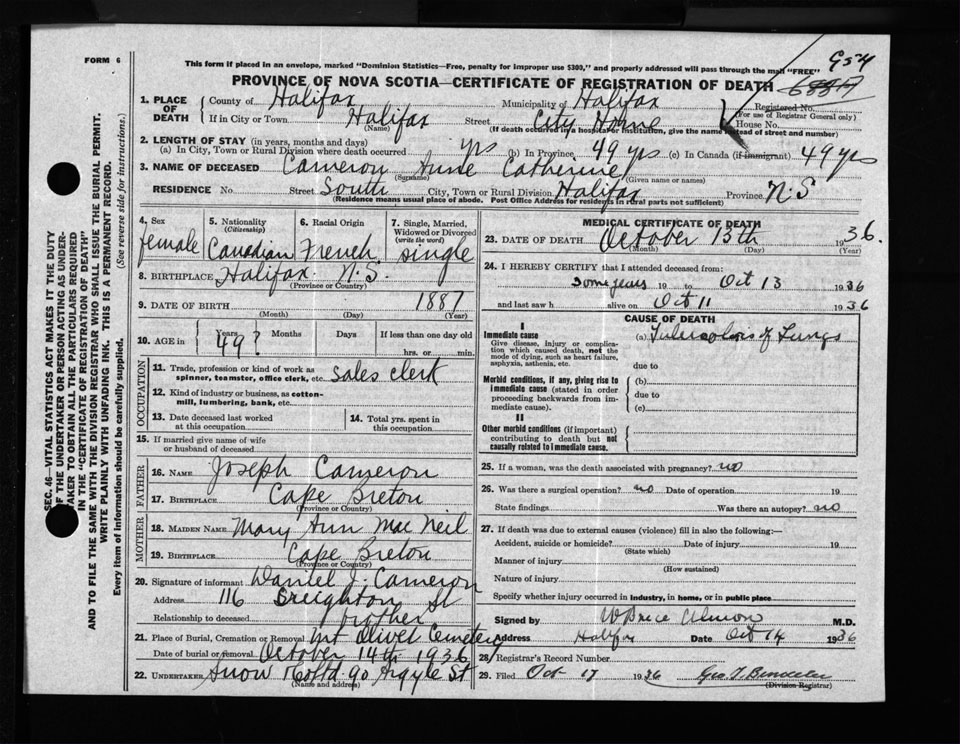 FORM 6
This form if placed in an envelope, marked "Dominion Statistics—Free, penalty for improper use $300," and properly addressed will pass through the mail "FREE"
954
PROVINCE OF NOVA SCOTIA—CERTIFICATE OF REGISTRATION OF DEATH
1. PLACE OF DEATH County of Halifax Municipality of Halifax Registered No.
(For use of Registrar General only)
If in City or Town Halifax Street City Home House No.
(Name) (If death occurred in a hospital or institution, give the name instead of street and number)
2. LENGTH OF STAY (in years, months and days)
(a) In City, Town or Rural Division where death occurred yrs (b) In Province 49 yrs (c) In Canada (if immigrant) 49 yrs
3. NAME OF DECEASED Cameron Anne Catherine
(Surname) (Given name or names)
RESIDENCE No. Street South City, Town or Rural Division Halifax Province N.S
(Residence means usual place of abode. Post Office Address for residents in rural parts not sufficient)
4. Sex female
5. Nationality (Citizenship) Canadian
6. Racial Origin French
7. Single, Married, Widowed or Divorced (write the word) single
8. BIRTHPLACE Halifax N.S.
(Province or Country)
9. DATE OF BIRTH 1887
(Month) (Day) (Year)
10. AGE in Years 49? Months Days If less than one day old hrs. or min.
OCCUPATION
11. Trade, profession or kind of work as spinner, teamster, office clerk, etc. sales clerk
12. Kind of industry or business, as cotton-mill, lumbering, bank, etc.
13. Date deceased last worked at this occupation
14. Total yrs. spent in this occupation
15. If married give name of wife or husband of deceased
FATHER
16. NAME Joseph Cameron
17. BIRTHPLACE Cape Breton
(Province or Country)
MOTHER
18. MAIDEN NAME Mary Ann MacNeil
19. BIRTHPLACE Cape Breton
(Province or Country)
20. Signature of informant Daniel J. Cameron
Address 116 Creighton St
Relationship to deceased brother
21. Place of Burial, Cremation or Removal Mt Olivet Cemetery
Date of burial or removal October 14th 1936
22. UNDERTAKER Snow Co Ltd 90 Argyle St
(Name and address)
MEDICAL CERTIFICATE OF DEATH
23. DATE OF DEATH October 13th 1936.
(Month) (Day) (Year)
24. I HEREBY CERTIFY that I attended deceased from:
Some years 19 to Oct 13 1936
and last saw h alive on Oct 11 1936
CAUSE OF DEATH
I
Immediate cause
Give disease, injury or complication which caused death, not the mode of dying, such as heart failure, asphyxia, asthenia, etc.
(a) Tuberculosis of Lungs
due to
Morbid conditions, if any, giving rise to immediate cause (stated in order proceeding backwards from immediate cause)
(b)
due to
(c)
II
Other morbid conditions (if important) contributing to death but not causally related to immediate cause.
25. If a woman, was the death associated with pregnancy? no
26. Was there a surgical operation? no Date of operation 19
State findings Was there an autopsy? no
27. If death was due to external causes (violence) fill in also the following:—
Accident, suicide or homicide? Date of injury 19
(State which)
Manner of injury
(How sustained)
Nature of injury
Specify whether injury occurred in industry, in home, or in public place
Signed by W Bruce Almon M.D.
Address Halifax Date Oct 14 1936
28. Registrar's Record Number
29. Filed Oct 17 1936 Geo. T.
(Division Registrar)
SEC. 46—VITAL STATISTICS ACT MAKES IT THE DUTY
OF THE UNDERTAKER OR PERSON ACTING AS UNDER-
TAKER TO OBTAIN ALL THE PARTICULARS REQUIRED
IN THE "CERTIFICATE OF REGISTRATION OF DEATH"
AND TO FILE THE SAME WITH THE DIVISION REGISTRAR WHO SHALL ISSUE THE BURIAL PERMIT.
WRITE PLAINLY WITH UNFADING INK. THIS IS A PERMANENT RECORD.
Every item of information should be carefully supplied. (See reverse side for instructions.)